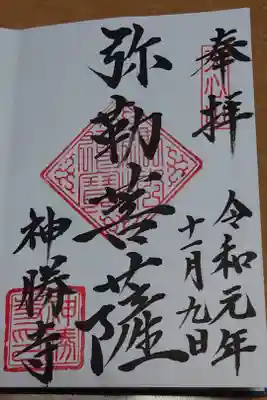 奉拝
令和元年
十一月九日
弥勒菩薩
神勝寺